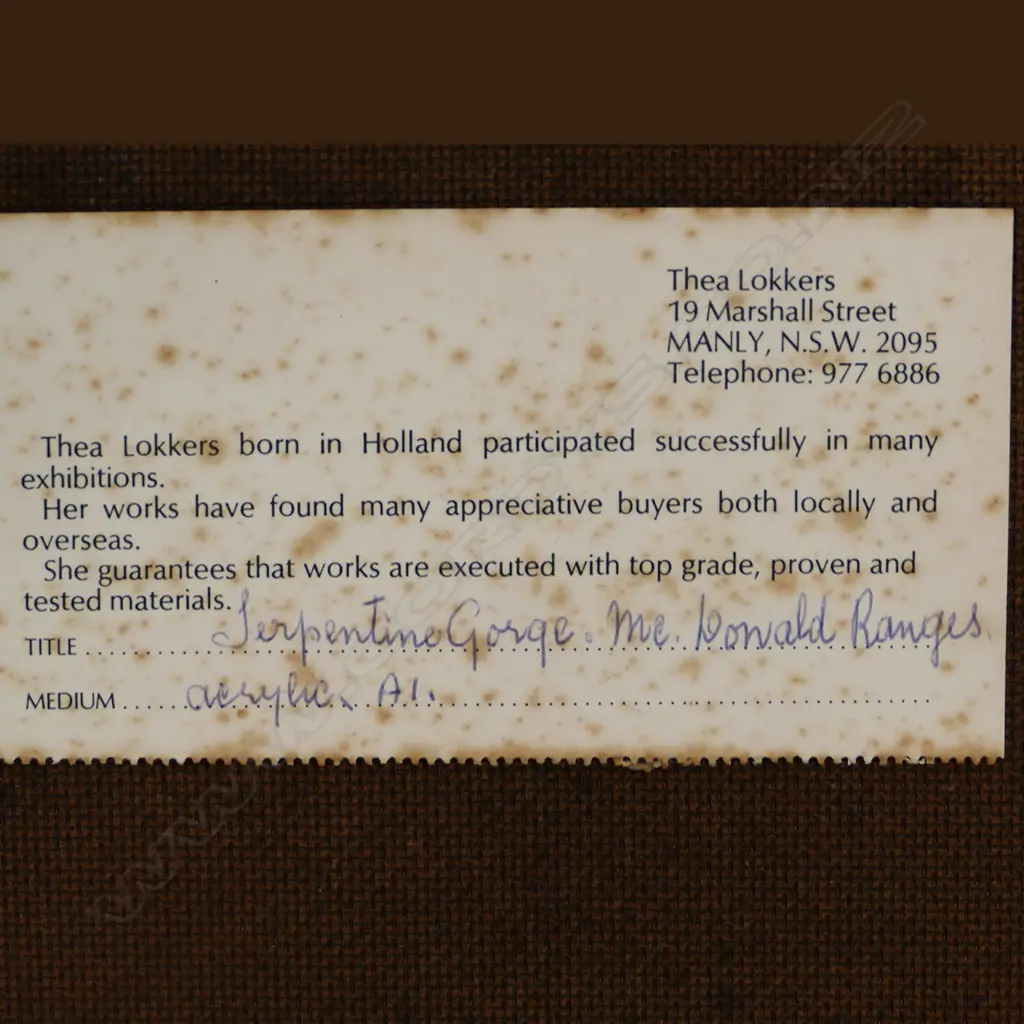 Thea Lokkers
19 Marshall Street
MANLY, N.S.W. 2095
Telephone: 977 6886
Thea Lokkers born in Holland participated successfully in many
exhibitions.
Her works have found many appreciative buyers both locally and
overseas.
She guarantees that works are executed with top grade, proven and
tested materials.
TITLE Serpentine Gorge. Mc. Donald Ranges
MEDIUM acrylic. A1.